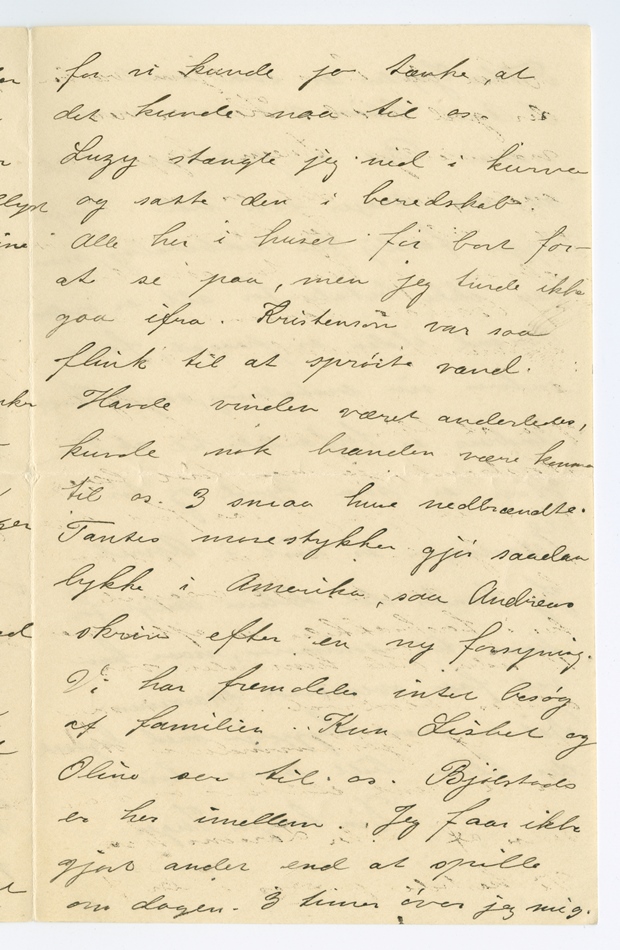 for vi kunde jo tænke, at
det kunde naa til os.
Luzy stængte jeg ned i kurven
og satte den i beredskab.
Alle her i huset før bort for
at se paa, men jeg turde ikke
gaa ifra. Kristensen var saa
flink til at sprøite vand.
Havde vinden været anderledes,
kunde nok branden være komme
til os. 3 smaa huse nedbrændte.
Tantes mosestykker gjør saadan
lykke i Amerika, saa Andreas
skriver efter en ny forsyning.
Vi har fremdeles intet besøg
af familien. Kun Lisbet og
Oline ser til os. Bjølstads
er her imellem. Jeg faar ikke
gjort andet end at spille
om dagen. 3 timer øver jeg mig.